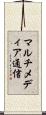 マルチメデ
ィア通信